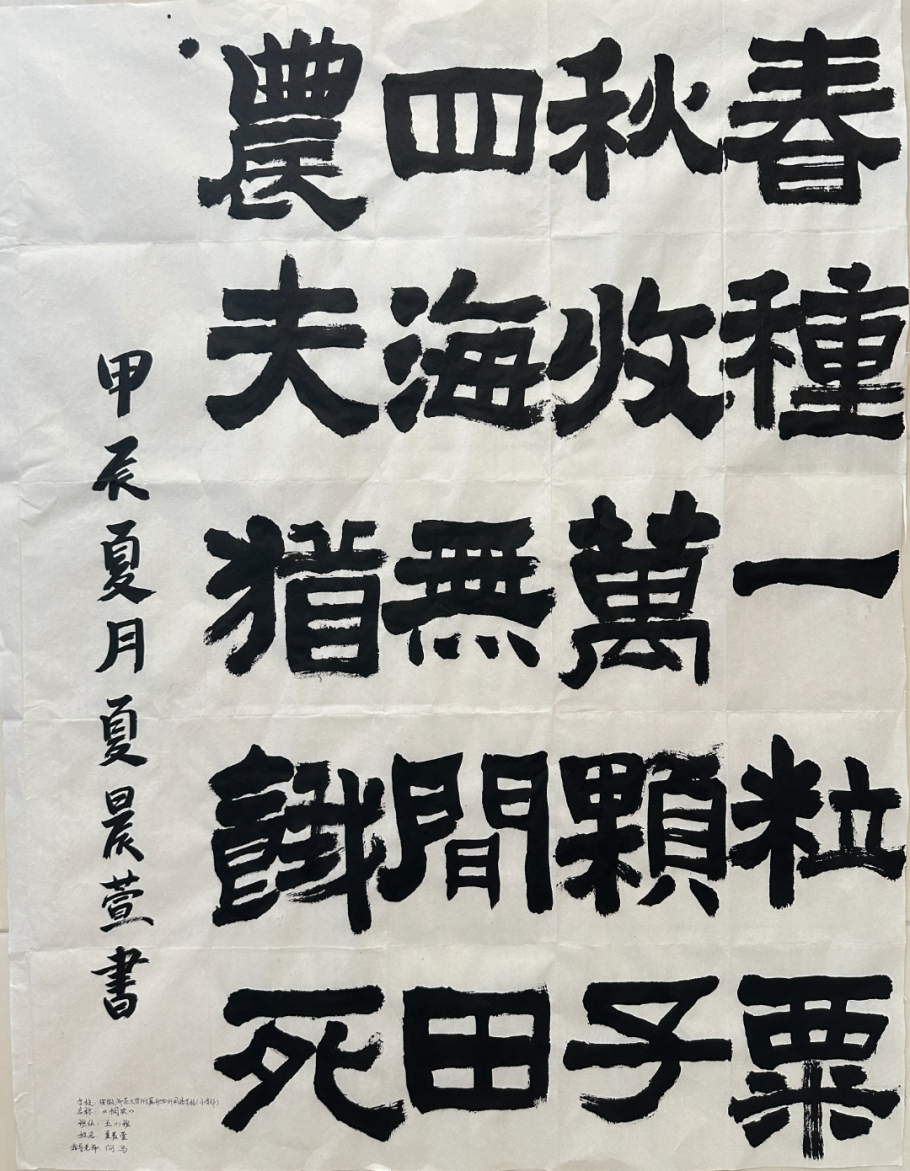 春種一粒粟
秋收萬顆子
四海無間田
農夫猶餓死
甲辰夏月夏晨萱書
学校:
名称:《悯农》
班级:五
姓名:夏晨萱
指导老师:何